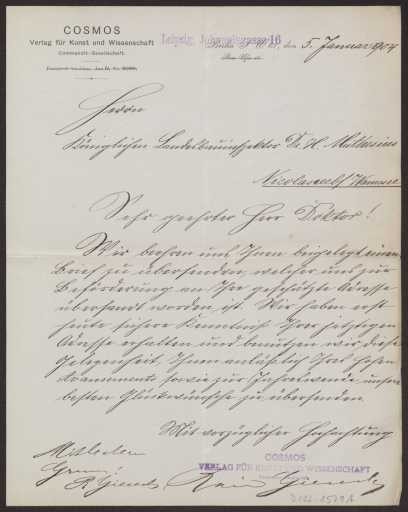 COSMOS
Verlag für Kunst und Wissenschaft
Commandit-Gesellschaft.
Leipzig, Johannisgasse 16
Berlin S.W. den 5. Januar 1904
Herrn
Königlichen Landesbauinspektor Dr. H. Muthesius
Nicolassee b/ Wannsee
Sehr geehrter Herr Doktor!
Wir beehren uns Ihnen beigelegt einen
Brief zu übersenden, welcher uns zur
Beförderung an Ihre geschätzte Adresse
übersandt worden ist. Wir haben erst
heute sichere Kenntniß Ihrer jetzigen
Adresse erhalten und benützen wir diese
Gelegenheit Ihnen anläßlich Ihres hohen
Avancements sowie zur Jahreswende unsere
besten Glückwünsche zu übersenden.
Mit vorzüglicher Hochachtung
COSMOS
VERLAG FÜR KUNST UND WISSENSCHAFT
Mit besten
Gruss!
R. Giesecke
Giesecke
D102-1579A